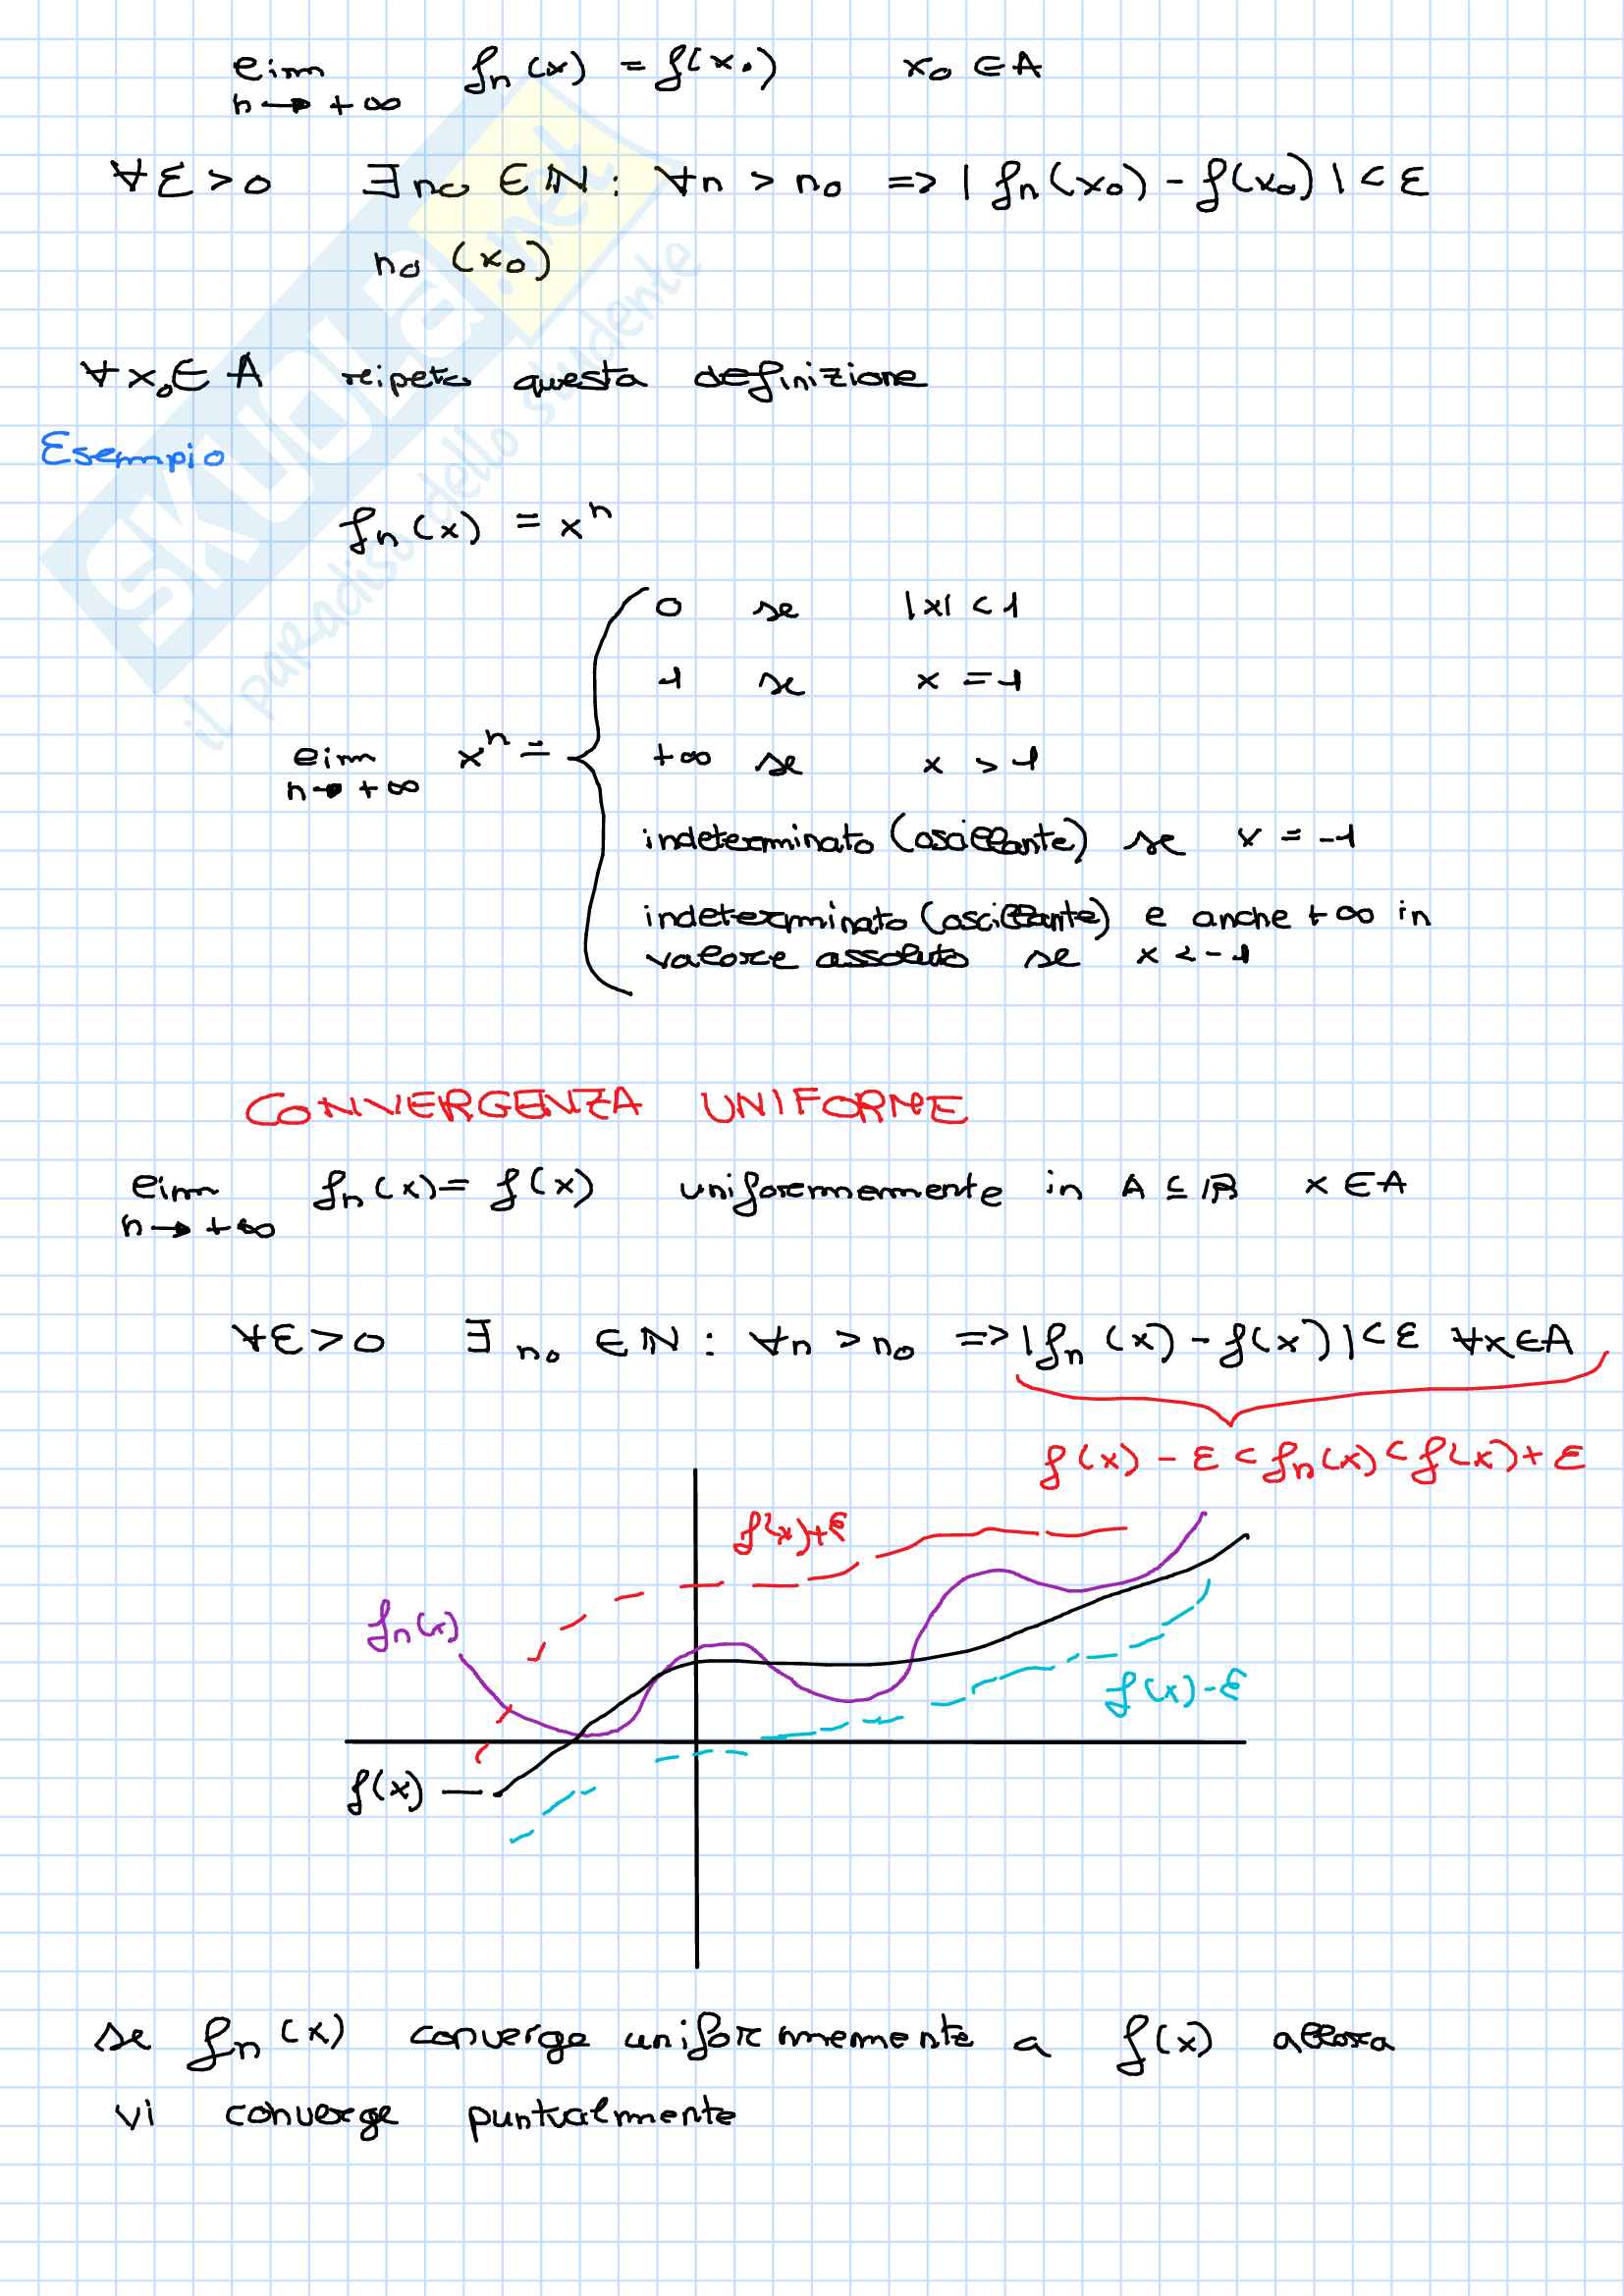 lim fn(x) = f(x₀) x₀ ∈ A
n → +∞
∀ε > 0 ∃ n₀ ∈ ℕ : ∀n > n₀ => | fn(x₀) - f(x₀) | < ε
n₀ (x₀)
∀x₀ ∈ A reipeto questa definizione
Esempio
fn(x) = xⁿ
0 se |x| < 1
1 se x = 1
lim xⁿ = +∞ se x > 1
n → +∞
indeterminato (oscillante) se x = -1
indeterminato (oscillante) e anche +∞ in
valore assoluto se x < -1
CONVERGENZA UNIFORME
lim fn(x) = f(x) uniformemente in A ⊆ ℝ x ∈ A
n → +∞
∀ε > 0 ∃ n₀ ∈ ℕ : ∀n > n₀ => | fn(x) - f(x) | < ε ∀x ∈ A
f(x) - ε < fn(x) < f(x) + ε
f(x)+ε
fn(x)
f(x)-ε
f(x)
se fn(x) converge uniformemente a f(x) allora
vi converge puntualmente
SKUOLA.net
il paradiso dello studente